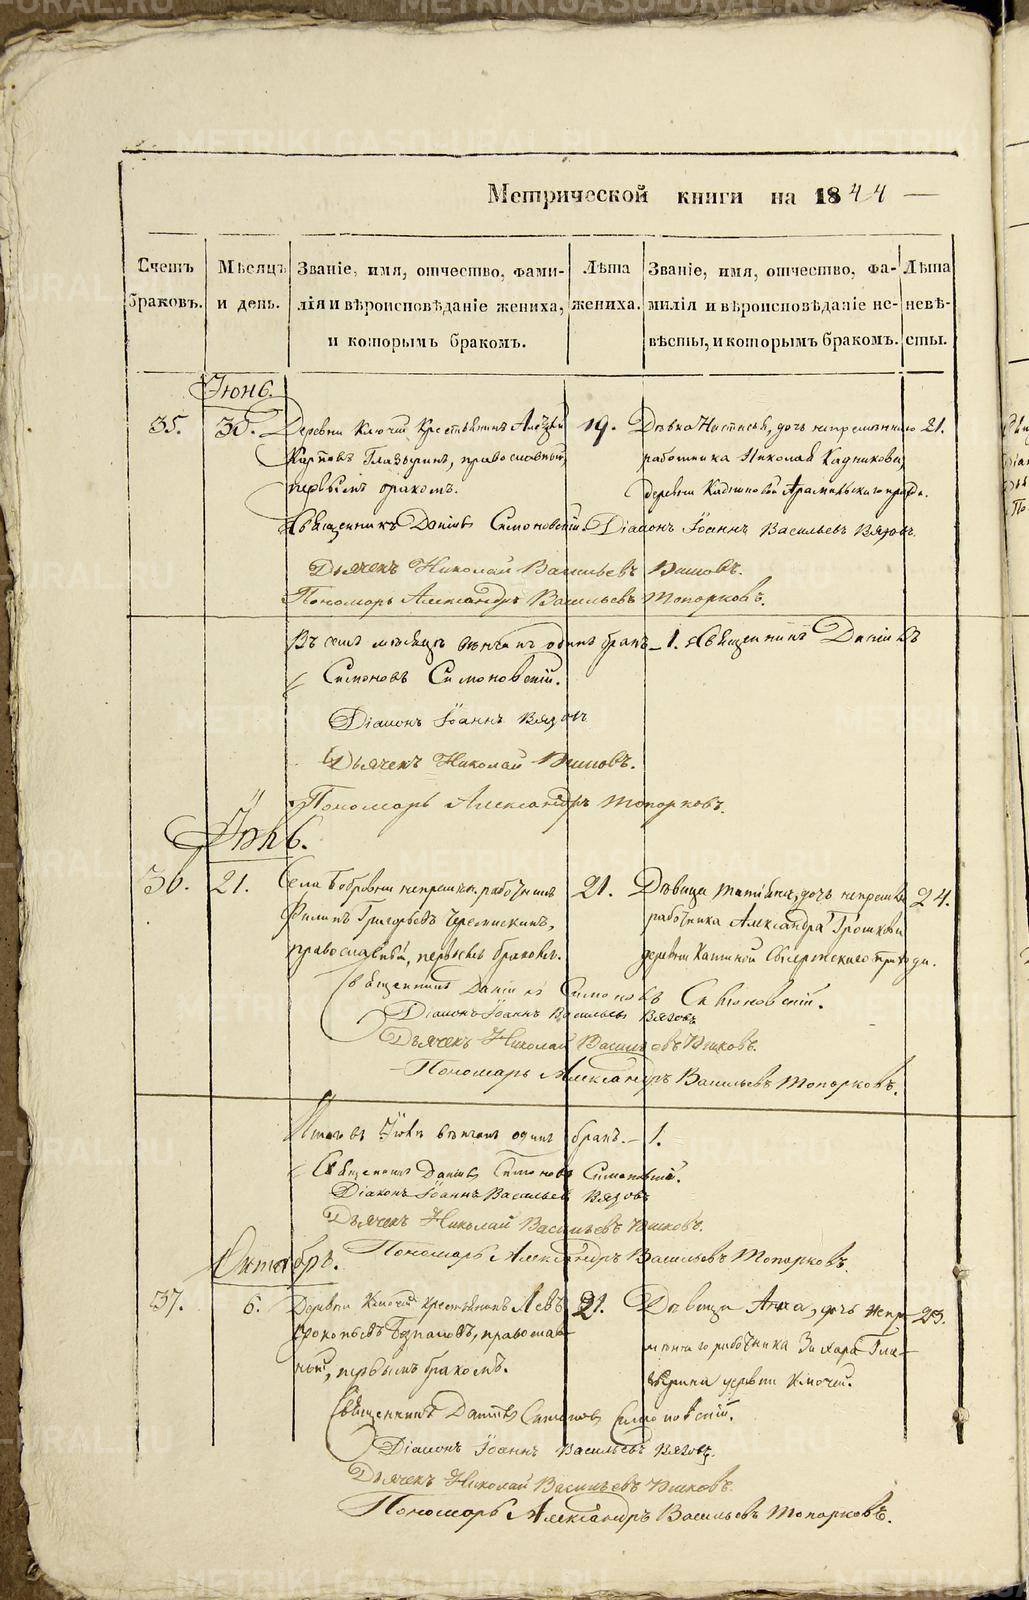 Метрической книги на 1844
Счетъ браковъ.
Мѣсяцъ и день.
Званіе, имя, отчество, фами-
лія и вѣроисповѣданіе жениха,
и которымъ бракомъ.
Лѣта
жениха.
Званіе, имя, отчество, фа-
милія и вѣроисповѣданіе не-
вѣсты, и которымъ бракомъ.
Лѣта
невѣ-
сты.
35. 30. Деревни Ключей крестьянинъ 19.
Карповъ Глазыринъ, православный,
первымъ бракомъ.
Дѣвка Настасья, дочь непременнаго 21.
работника Николая Кадникова,
деревни Кадниковой Арамильскаго
Священникъ Даніилъ Симоновскій. Діаконъ Іоаннъ Васильевъ Вязовъ.
Дьячекъ Николай Васильевъ
Пономарь Александръ Васильевъ Топорковъ.
Въ семъ месяце одинъ бракъ – 1. Священникъ Даніилъ
Симоновъ Симоновскій.
Діаконъ Іоаннъ Вязовъ
Дьячекъ Николай
Пономарь Александръ Топорковъ.
36. 21. Села Бобровки работникъ 21.
Филипъ Григорьевъ
православный, первымъ бракомъ.
Дѣвица Татіана, дочь 24.
работника Александра
деревни прихода.
Священникъ Даніилъ Симоновъ Симоновскій.
Діаконъ Іоаннъ Васильевъ Вязовъ
Дьячекъ Николай Васильевъ
Пономарь Александръ Васильевъ Топорковъ.
Итого въ одинъ бракъ. – 1.
Священникъ Даніилъ Симоновъ Симоновскій.
Діаконъ Іоаннъ Васильевъ Вязовъ
Дьячекъ Николай Васильевъ
Пономарь Александръ Васильевъ Топорковъ.
Октябрь.
37. 6. Деревни Ключей крестьянинъ Левъ 21.
православ-
ный, первымъ бракомъ.
Дѣвица Анна, дочь непре- 23.
меннаго работника Захара Гла-
зырина деревни Ключей.
Священникъ Даніилъ Симоновъ Симоновскій.
Діаконъ Іоаннъ Васильевъ Вязовъ.
Дьячекъ Николай Васильевъ
Пономарь Александръ Васильевъ Топорковъ.
METRIKI.GASO-URAL.RU